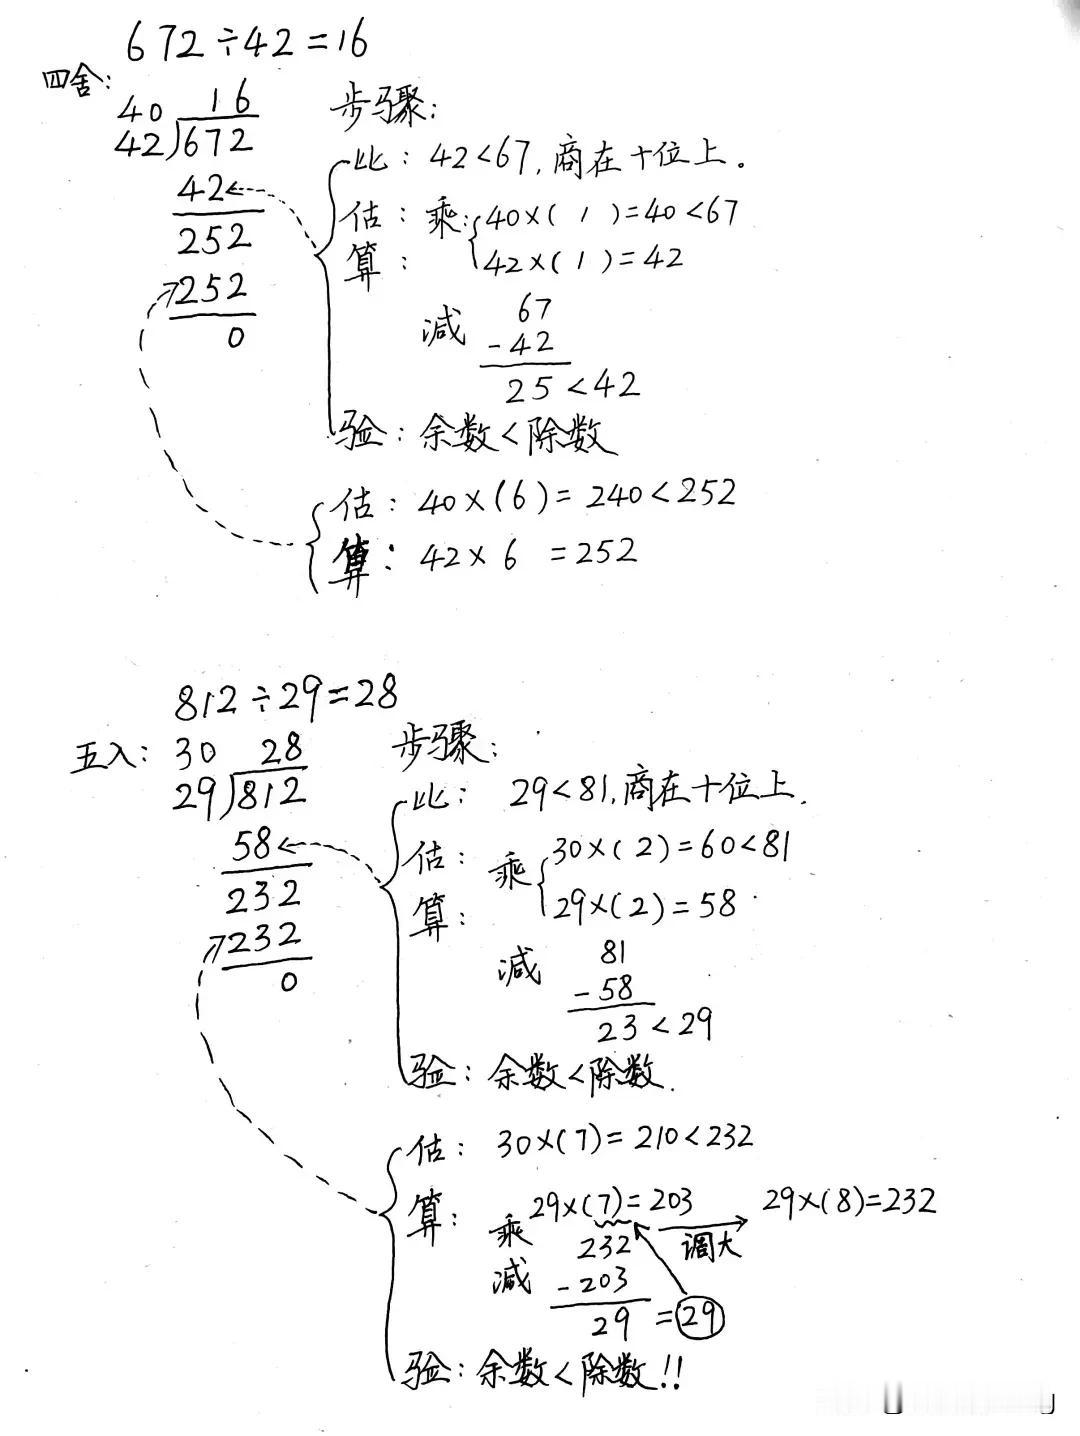 672÷42=16
四舍:
40 16
42)672
42
252
252
0
步骤:
比: 42<67, 商在十位上.
估: 乘: 40×(1)=40<67
算: 42×(1)=42
减 67
-42
25<42
验: 余数<除数
估: 40×(6)=240<252
算: 42×6=252
812÷29=28
五入: 30 28
29)812
58
232
232
0
步骤:
比: 29<81, 商在十位上.
估: 乘 30×(2)=60<81
算: 29×(2)=58
减 81
-58
23<29
验: 余数<除数.
估: 30×(7)=210<232
算: 乘 29×(7)=203 调大 29×(8)=232
减 232
-203
29=29
验: 余数<除数!!